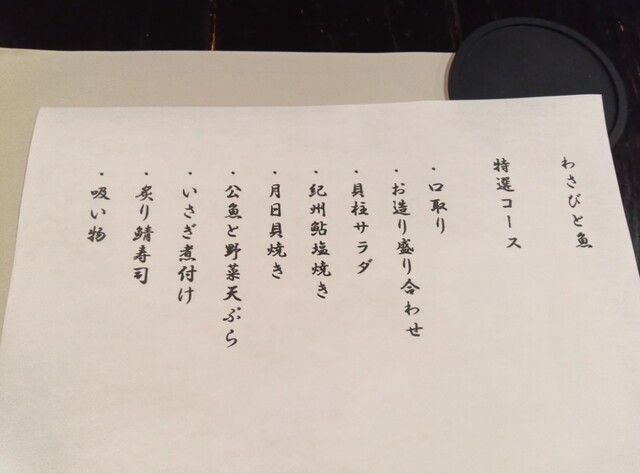 わさびと魚
特選コース
・口取り
・お造り盛り合わせ
・貝柱サラダ
・紀州鮎塩焼き
・月日貝焼き
・公魚と野菜天ぷら
・いさぎ煮付け
・炙り鯖寿司
・吸い物